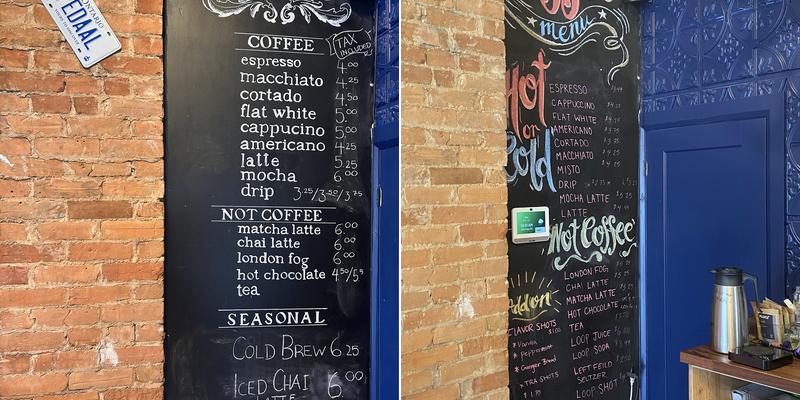 ONTARIO
EDAAL
COFFEE
TAX
INCLUDED
espresso 4.00
macchiato 4.25
cortado 4.50
flat white 5.00
cappucino 5.00
americano 4.25
latte 5.25
mocha 6.00
drip 3.25/3.50/3.75
NOT COFFEE
matcha latte 6.00
chai latte 6.00
london fog 6.00
hot chocolate 4.50/5.5
tea
SEASONAL
COLD BREW 6.25
ICED CHAI 6.00
LATTE
menu
Hot
or
Cold
ESPRESSO
CAPPUCCINO
FLAT WHITE
AMERICANO $3.75
CORTADO
MACCHIATO
MISTO
DRIP
MOCHA LATTE
LATTE
Not Coffee
LONDON FOG
CHAI LATTE
MATCHA LATTE
HOT CHOCOLATE
TEA
LOOP JUICE
LOOP SODA
LEFT FEILD
SELTZER
LOOP SHOT
Addon
FLAVOR SHOTS
* Vanilla
* Peppermint
* Ginger Bread
XTRA SHOTS